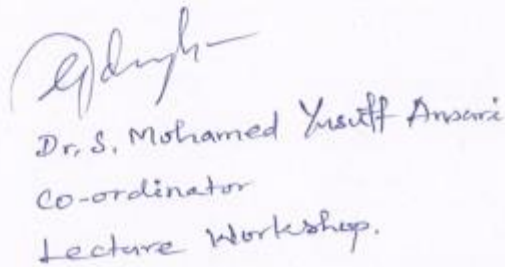 Dr. S. Mohamed Yusuff Ansari
Co-ordinator
Lecture Workshop.